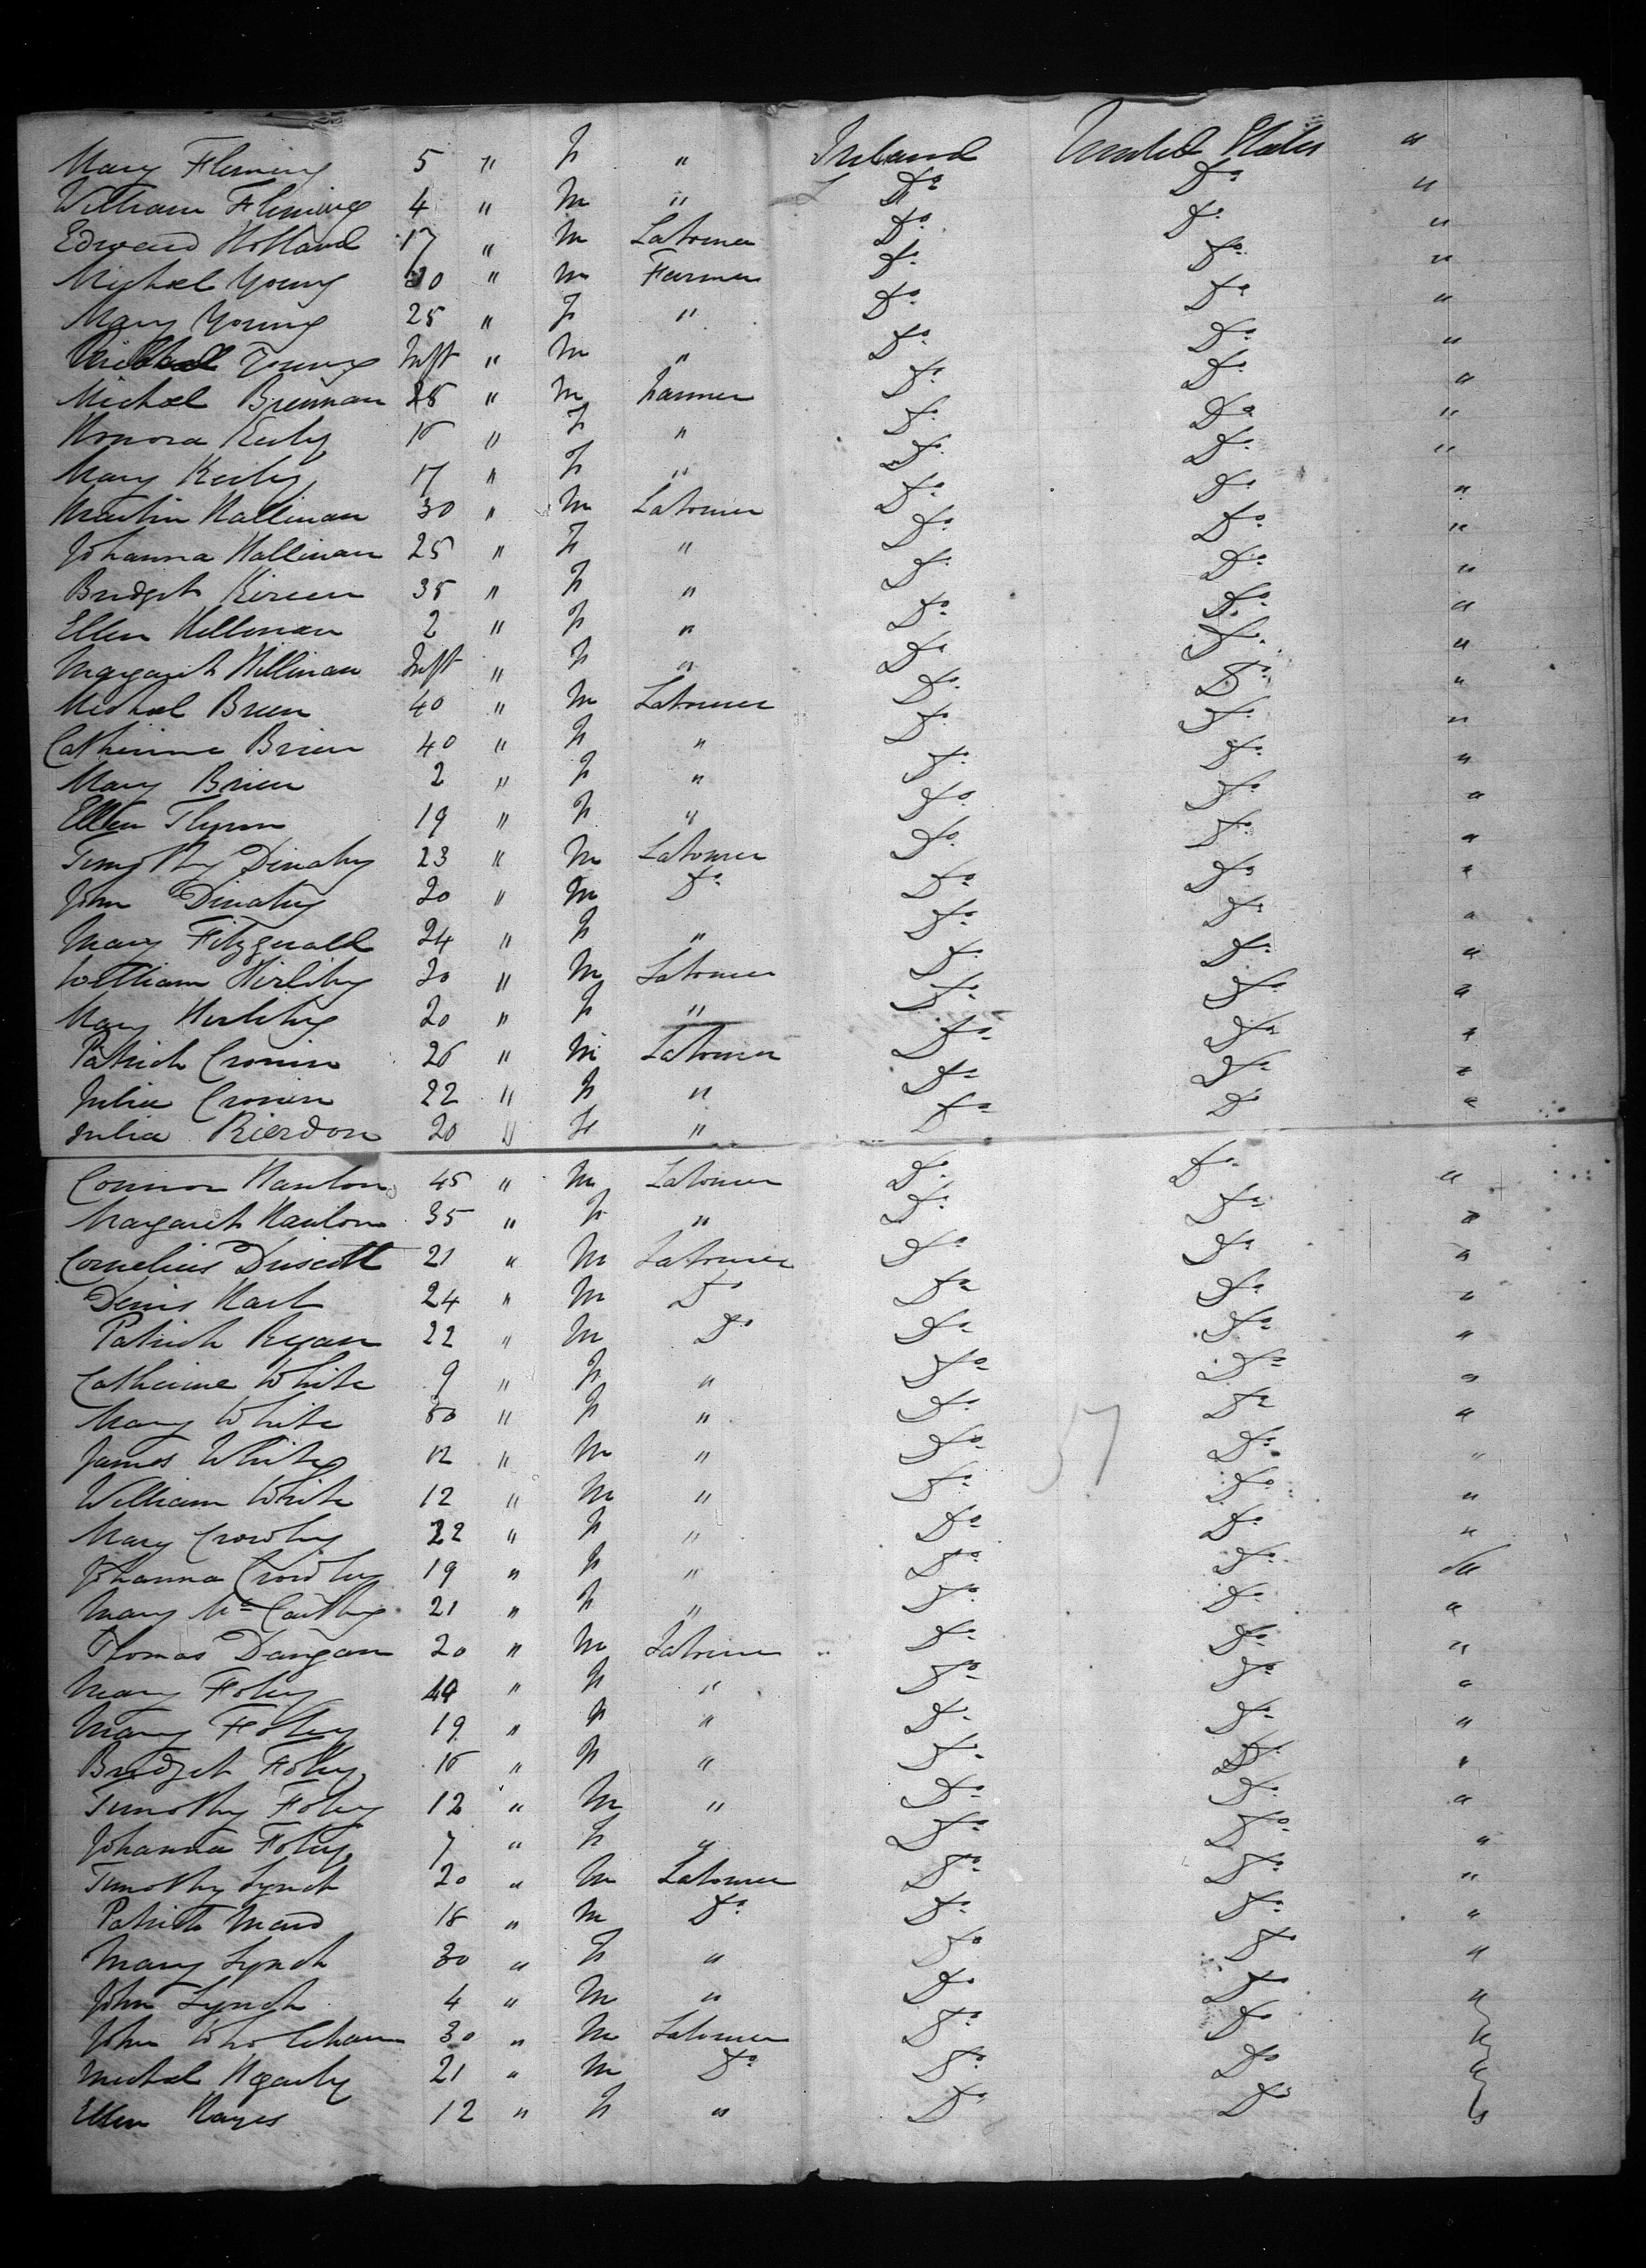 Mary Fleming 5 " F " Ireland United States "
William Fleming 4 " M " Do Do "
Edward Holland 17 " M Labourer Do Do "
Michael Young 30 " M Farmer Do Do "
Mary Young 25 " F " Do Do "
Michael Young Inft " M " Do Do "
Michael Brennan 25 " M Farmer Do Do "
Honora Keily " F " Do Do "
Mary Keily 17 " F " Do Do "
Martin Hallinan 30 " M Labourer Do Do "
Johanna Hallinan 25 " F " Do Do "
Bridget 35 " F " Do Do "
Ellen Hallinan 2 " F " Do Do "
Margaret Hallinan Inft " F " Do Do "
Michael Brien 40 " M Labourer Do Do "
Catherine Brien 40 " F " Do Do "
Mary Brien 2 " F " Do Do "
Ellen Flynn 19 " F " Do Do "
Timothy Dinahy 23 " M Labourer Do Do "
John Dinahy 20 " M Do Do Do "
Mary Fitzgerald 24 " F " Do Do "
William Herlihy 20 " M Labourer Do Do "
Mary Herlihy 20 " F " Do Do "
Patrick Cronin 26 " M Labourer Do Do "
Julia Cronin 22 " F " Do Do "
Julia Rierdon 20 " F " Do Do "
Connor Hanlon 45 " M Labourer Do Do "
Margaret Hanlon 35 " F " Do Do "
Cornelius Driscoll 21 " M Labourer Do Do "
Denis Hart 24 " M Do Do Do "
Patrick Ryan 22 " M Do Do Do "
Catherine White 9 " F " Do Do "
Mary White 50 " F " Do Do "
James White 12 " M " Do Do "
William White 12 " M " Do Do "
57
Mary Crowley 22 " F " Do Do "
Johanna Crowley 19 " F " Do Do "
Mary McCarthy 21 " F " Do Do "
Thomas Dangan 20 " M Labourer Do Do "
Mary Foley " F " Do Do "
Mary Foley 19 " F " Do Do "
Bridget Foley " F " Do Do "
Timothy Foley 12 " M " Do Do "
Johanna Foley 7 " F " Do Do "
Timothy Lynch 20 " M Labourer Do Do "
Patrick Ward 18 " M Do Do Do "
Mary Lynch 30 " F " Do Do "
John Lynch 4 " M " Do Do "
John 30 " M Labourer Do Do "
Michael Hegarty 21 " M Do Do Do "
Ellen Hayes 12 " F " Do Do "